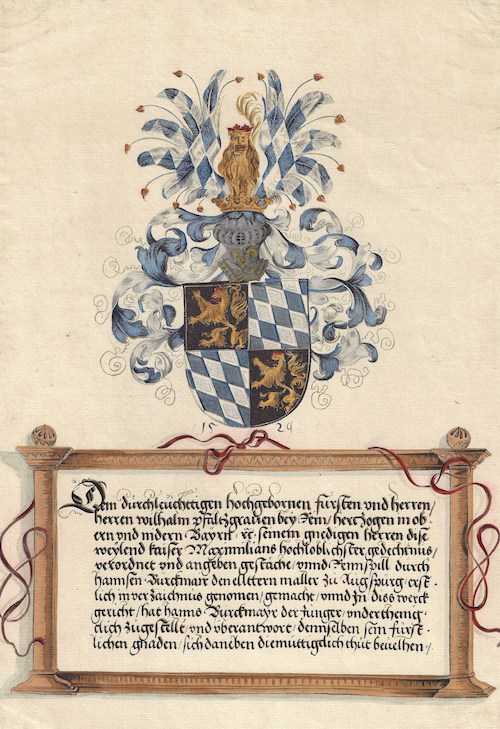 15 29
Dem durchleuchetigen hochgebornen fursten vnd herren /
herren wilhalm pfalzgrauen bey Rein / herczogen in ob ·
ern vnd nidern Bayrn ꝛc seinem gnedigen herren dise
weylend kaiser Maximilians hochloblichster gedechtnus /
verordnet vnd angeben gestäche / vnnd Rennspill durch
hannsen Burckmair den elltern maller zu Augspurg / erst ·
lich in verzaichnus genomen / gemacht / vnnd In diss werck
gericht / hat hanns Burckmayr der Junger / vnderthenig ·
clich zugestellt vnd vberantwort / demselben sein fürst ·
lichen gnaden / sich daneben diemuttigclich thut beuelhen /